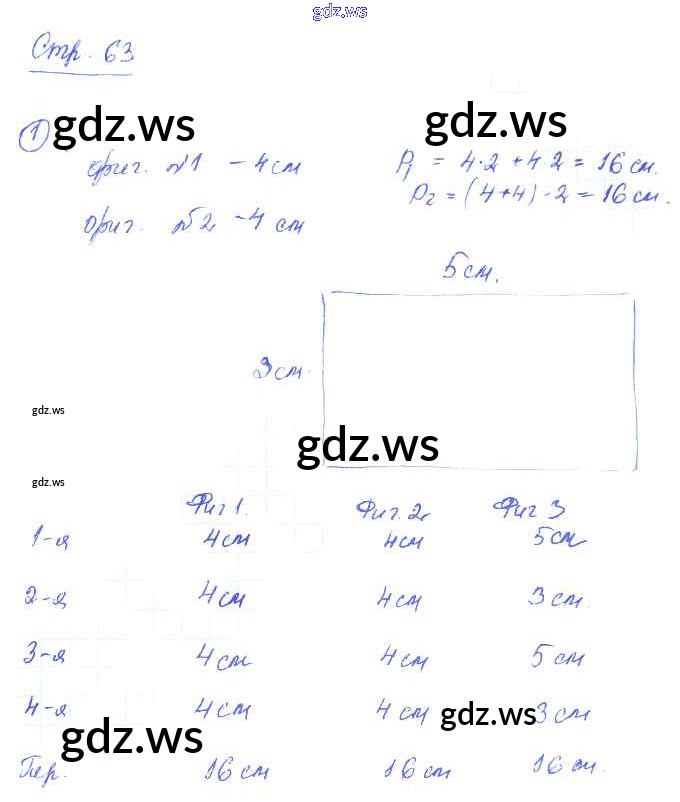 gdz.ws
Стр. 63
1 gdz.ws gdz.ws
фиг. №1 - 4 см P₁ = 4·2 + 4·2 = 16 см.
фиг. №2 - 4 см P₂ = (4+4)·2 = 16 см.
5 см.
3 см.
gdz.ws
gdz.ws
gdz.ws
Фиг 1. Фиг. 2. Фиг 3
1-я 4 см 4 см 5 см
2-я 4 см 4 см 3 см.
3-я 4 см 4 см 5 см
4-я 4 см 4 см 3 см
gdz.ws gdz.ws
Пер. 16 см 16 см 16 см.